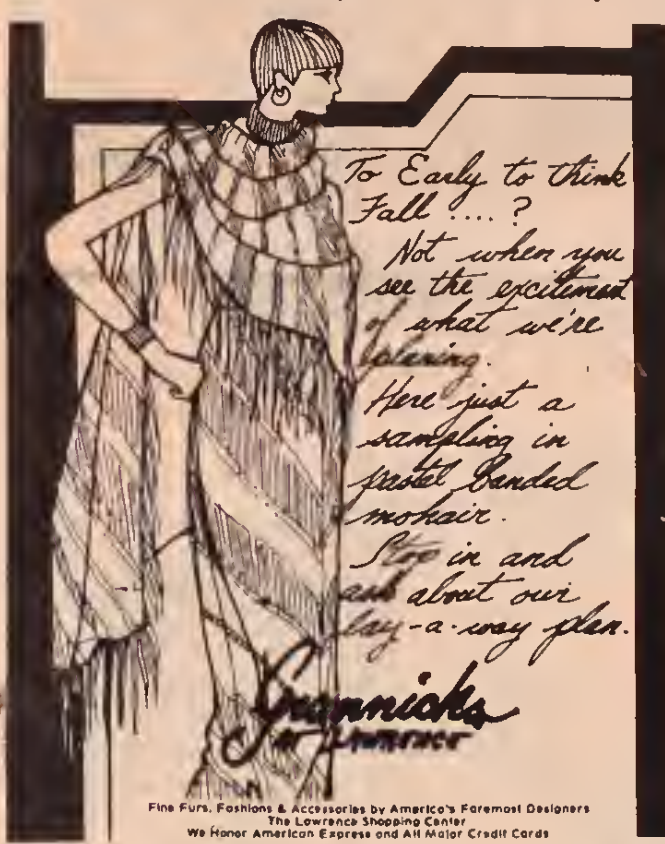 To Early to think
Fall .... ?
Not when you
see the excitement
of what we're
planing.
Here just a
sampling in
pastel banded
mohair.
Stop in and
ask about our
lay-a-way plan.
of Lawrence
Fine Furs, Fashions & Accessories by America's Foremost Designers
The Lawrence Shopping Center
We Honor American Express and All Major Credit Cards